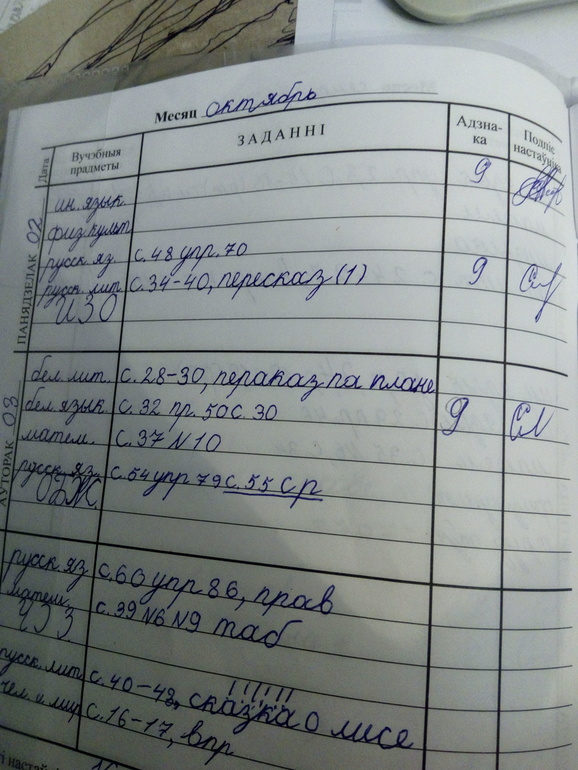 Месяц октябрь
Дата Вучэбныя прадметы ЗАДАННІ Адзна-ка Подпіс настаўніка
ПАНЯДЗЕЛАК 02
ин. язык 9
физкульт
русск. яз. с. 48 упр. 70
русск. лит. с. 34-40, пересказ (1) 9
ИЗО
АУТОРАК 03
бел. лит. с. 28-30, пераказ па плане
бел. язык. с. 32 пр. 50 с. 30 9
матем. с. 37 N 10
русск. яз. с. 54 упр 79 с. 55 с р
ОБЖ
русск. яз с. 60 упр. 86, прав
матем. с. 39 N6 N9 таб
ЧЗЗ
!!!!!!
русск. лит. с. 40-48, сказка о лисе
чел. и мир с. 16-17, впр